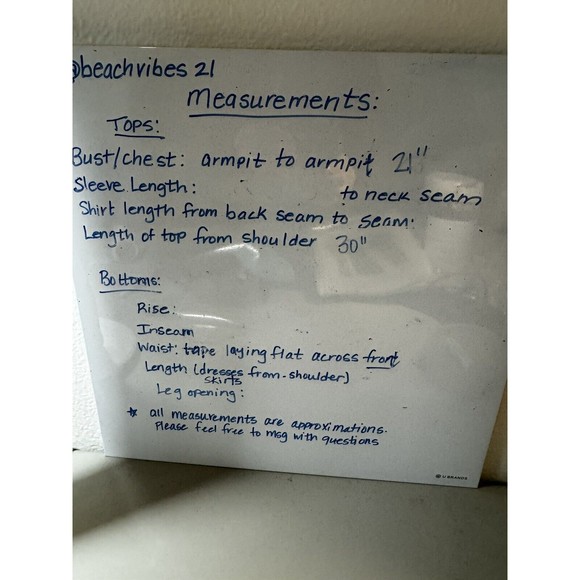 @beachvibes 21
Measurements:
Tops:
Bust/chest: armpit to armpit 21"
Sleeve Length: to neck seam
Shirt length from back seam to seam:
Length of top from shoulder 30"
Bottoms:
Rise:
Inseam
Waist: tape laying flat across front
Length (dresses from shoulder)
skirts
Leg opening:
* all measurements are approximations.
Please feel free to msg with questions
U BRANDS